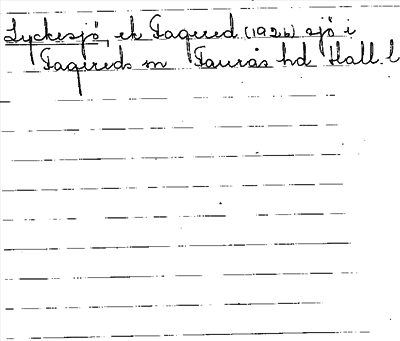 Lyckesjö, ek Fagered (1926) sjö i
Fagireds sn Faurås hd Hall. l